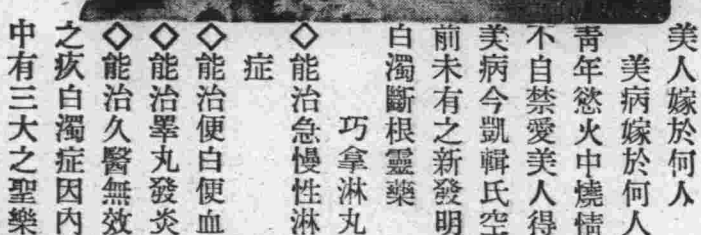 美人嫁於何人
美病嫁於何人
靑年慾火中燒情
不自禁愛美人得
美病今凱輯氏空
前未有之新發明
白濁斷根靈藥
巧拿淋丸
◇能治急慢性淋
症
◇能治便白便血
◇能治睪丸發炎
◇能治久醫無效
之疚白濁症因內
中有三大之聖樂